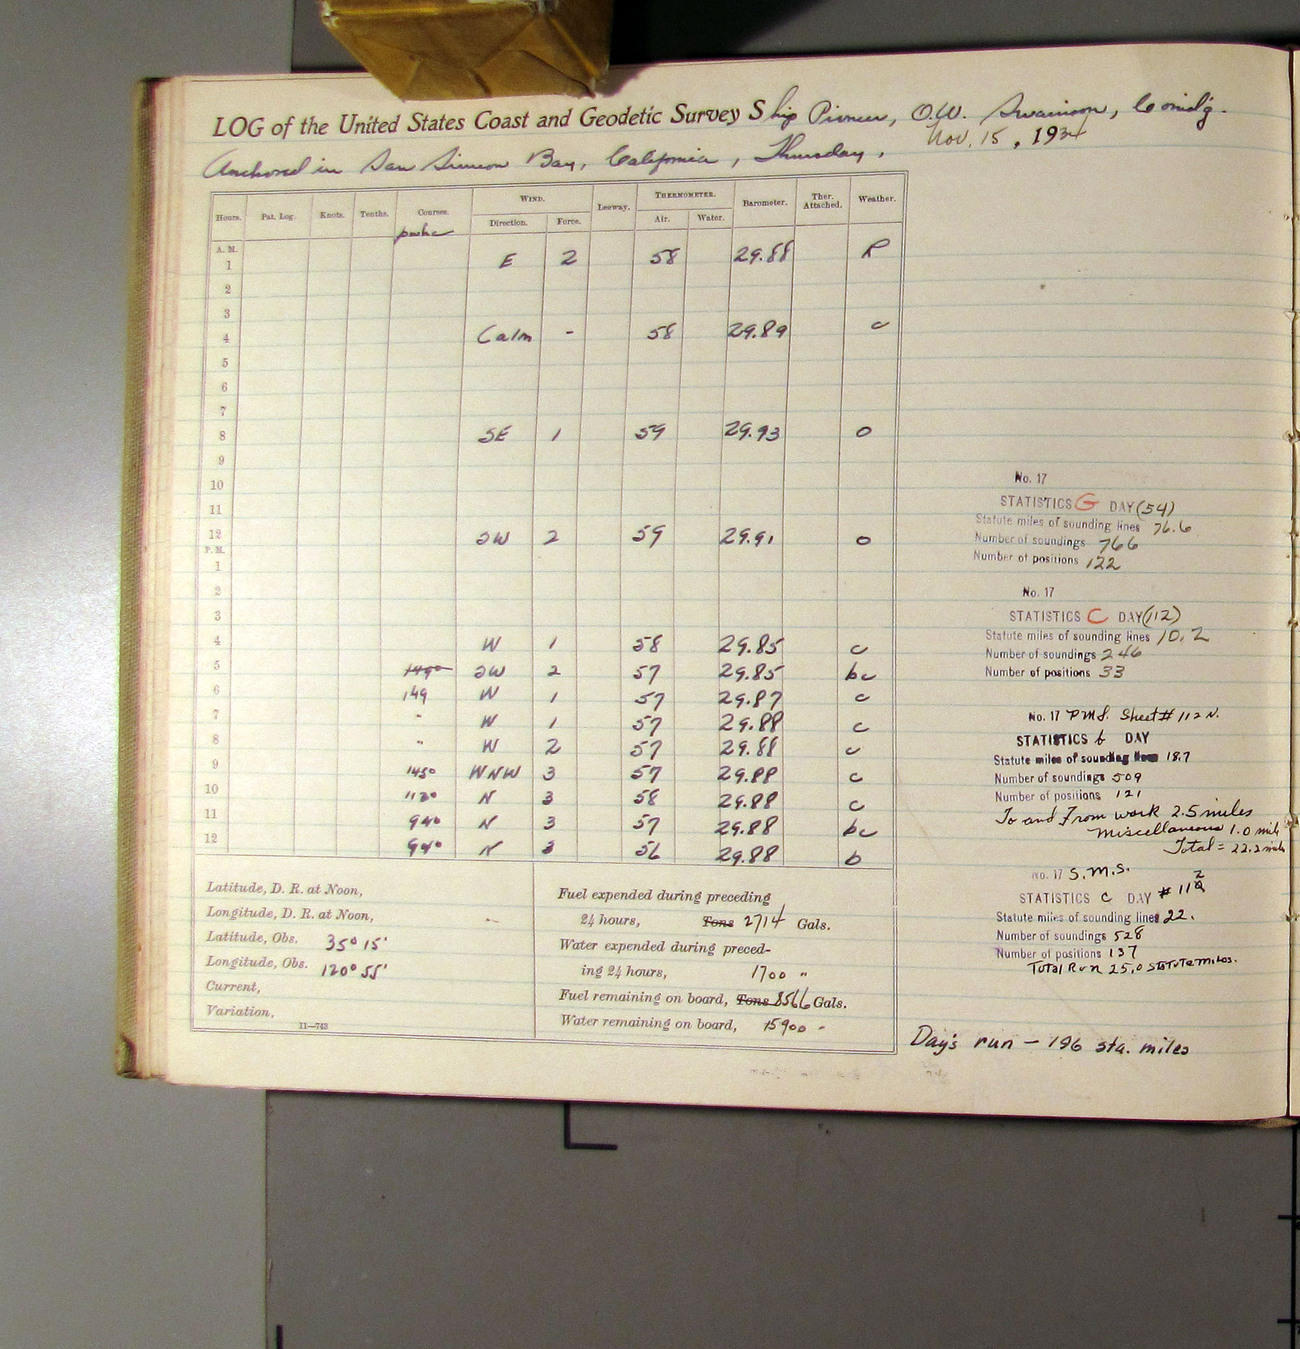 LOG of the United States Coast and Geodetic Survey Ship Pioneer, O.W. Swainson, Comdg.
Nov. 15, 1934
Anchored in San Simeon Bay, California, Thursday,
Hours. Pat. Log. Knots. Tenths. Courses. WIND. Leeway. THERMOMETER. Barometer. Ther. Attached. Weather.
Direction. Force. Air. Water.
pshc
A. M.
1 E 2 58 29.88 R
2
3
4 Calm - 58 29.89 c
5
6
7
8 SE 1 59 29.93 o
9
10
11
12 SW 2 59 29.91 o
P. M.
1
2
3
4 W 1 58 29.85 c
5 149° SW 2 57 29.85 bc
6 149 W 1 57 29.87 c
7 " W 1 57 29.88 c
8 " W 2 57 29.88 c
9 145° WNW 3 57 29.88 c
10 113° N 3 58 29.88 c
11 94° N 3 57 29.88 bc
12 94° N 3 56 29.88 b
Latitude, D. R. at Noon,
Longitude, D. R. at Noon,
Latitude, Obs. 35° 15'
Longitude, Obs. 120° 55'
Current,
Variation,
11—743
Fuel expended during preceding
24 hours, Tons 2714 Gals.
Water expended during preced-
ing 24 hours, 1700 "
Fuel remaining on board, Tons 8566 Gals.
Water remaining on board, 15900 "
No. 17
STATISTICS G DAY (54)
Statute miles of sounding lines 76.6
Number of soundings 766
Number of positions 122
No. 17
STATISTICS C DAY (112)
Statute miles of sounding lines 10.2
Number of soundings 246
Number of positions 33
No. 17 P.M.S. Sheet # 112 N.
STATISTICS b DAY
Statute miles of sounding lines 18.7
Number of soundings 509
Number of positions 121
To and From work 2.5 miles
Miscellaneous 1.0 mile
Total = 22.2 miles
No. 17 S.M.S.
STATISTICS C DAY # 112
Statute miles of sounding lines 22.
Number of soundings 528
Number of positions 137
Total Run 25.0 Statute Miles.
Day's run — 196 sta. miles